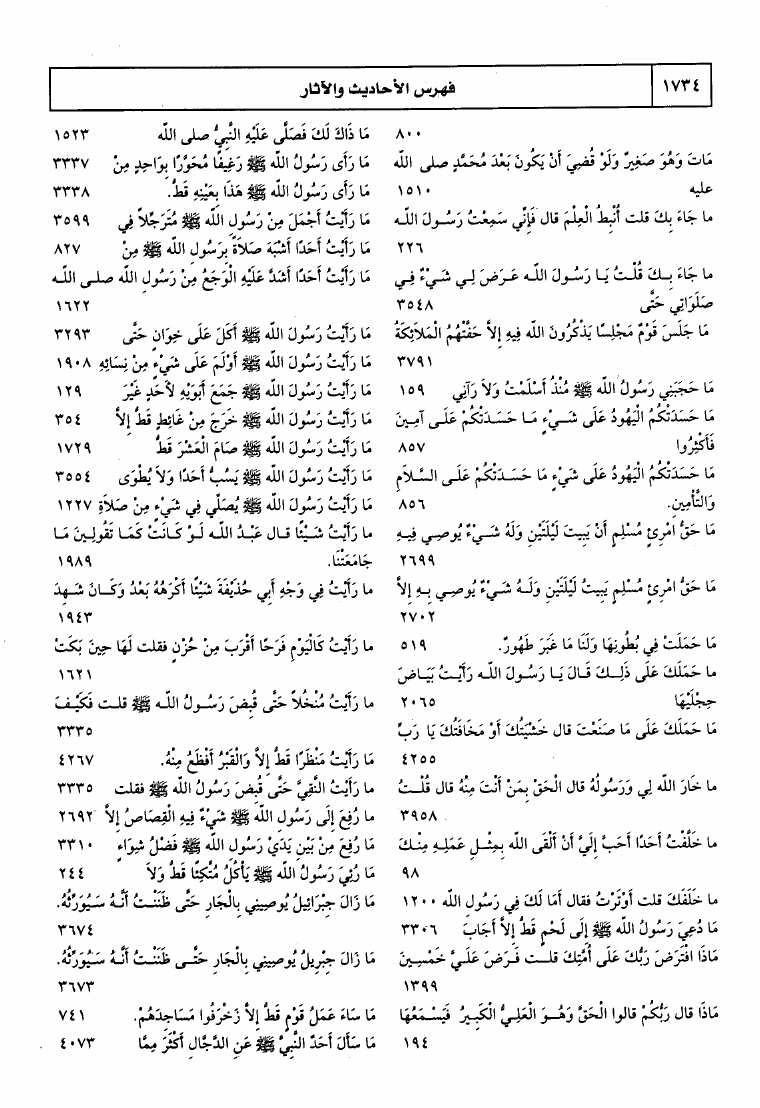 ١٧٣٤
فهرس الأحاديث والآثار
٨٠٠
مَاتَ وَهُوَ صَغِيرٌ وَلَوْ قُضِيَ أَنْ يَكُونَ بَعْدَ مُحَمَّدٍ صلى الله
عليه ١٥١٠
ما جَاءَ بِكَ قلت أُنْبِطُ الْعِلْمَ قال فَإِنِّي سَمِعْتُ رَسُولَ اللَّه
٢٢٦
ما جَاءَ بِكَ قُلْتُ يَا رَسُولَ اللَّه عَرَضَ لِي شَيْءٌ فِي
صَلَوَاتِي حَتَّى ٣٥٤٨
مَا جَلَسَ قَوْمٌ مَجْلِسًا يَذْكُرُونَ الله فِيهِ إِلاَّ حَفَّتْهُمُ الْمَلاَئِكَةُ
٣٧٩١
مَا حَجَبَنِي رَسُولُ اللَّه ﷺ مُنْذُ أَسْلَمْتُ وَلاَ رَآنِي ١٥٩
مَا حَسَدَتْكُمُ الْيَهُودُ عَلَى شَيْءٍ مَا حَسَدَتْكُمْ عَلَى آمِينَ
فَأَكْثِرُوا ٨٥٧
مَا حَسَدَتْكُمُ الْيَهُودُ عَلَى شَيْءٍ مَا حَسَدَتْكُمْ عَلَى السَّلاَمِ
وَالتَّأْمِينِ. ٨٥٦
مَا حَقُّ امْرِئٍ مُسْلِمٍ أَنْ يَبِيتَ لَيْلَتَيْنِ وَلَهُ شَيْءٌ يُوصِي فِيهِ
٢٦٩٩
مَا حَقُّ امْرِئٍ مُسْلِمٍ يَبِيتُ لَيْلَتَيْنِ وَلَهُ شَيْءٌ يُوصِي بِهِ إِلاَّ
٢٧٠٢
مَا حَمَلَتْ فِي بُطُونِهَا وَلَنَا مَا غَبَرَ طَهُورٌ. ٥١٩
ما حَمَلَكَ عَلَى ذَلِكَ قَالَ يَا رَسُولَ اللَّه رَأَيْتُ بَيَاضَ
حِجْلَيْهَا ٢٠٦٥
مَا حَمَلَكَ عَلَى مَا صَنَعْتَ قال خَشْيَتُكَ أَوْ مَخَافَتُكَ يَا رَبِّ
٤٢٥٥
ما خَارَ الله لِي وَرَسُولُهُ قال الْحَقْ بِمَنْ أَنْتَ مِنْهُ قال قُلْتُ
٣٩٥٨
ما خَلَّفْتُ أَحَدًا أَحَبَّ إِلَيَّ أَنْ أَلْقَى الله بِمِثْلِ عَمَلِهِ مِنْكَ
٩٨
ما خَلَفَكَ قلت أَوْتَرْتُ فقال أمَا لَكَ فِي رَسُولِ الله ١٢٠٠
مَا دُعِيَ رَسُولُ اللَّه ﷺ إِلَى لَحْمٍ قَطُّ إِلاَّ أَجَابَ ٣٣٠٦
مَاذَا افْتَرَضَ رَبُّكَ عَلَى أُمَّتِكَ قلت فَرَضَ عَلَيَّ خَمْسِينَ
١٣٩٩
مَاذَا قال رَبُّكُمْ قالوا الْحَقَّ وَهُوَ الْعَلِيُّ الْكَبِيرُ فَيَسْمَعُهَا
١٩٤
مَا ذَاكَ لَكَ فَصَلَّى عَلَيْهِ النَّبِيُّ صلى الله ١٥٢٣
مَا رَأَى رَسُولُ اللَّه ﷺ رَغِيفًا مُحَوَّرًا بِوَاحِدٍ مِنْ ٣٣٣٧
مَا رَأَى رَسُولُ اللَّه ﷺ هَذَا بِعَيْنِهِ قَطُّ. ٣٣٣٨
مَا رَأَيْتُ أَجْمَلَ مِنْ رَسُولِ اللَّه ﷺ مُتَرَجِّلاً فِي ٣٥٩٩
مَا رَأَيْتُ أَحَدًا أَشْبَهَ صَلاَةً بِرَسُولِ اللَّه ﷺ مِنْ ٨٢٧
مَا رَأَيْتُ أَحَدًا أَشَدَّ عَلَيْهِ الْوَجَعُ مِنْ رَسُولِ اللَّه صلى اللَّه
١٦٢٢
مَا رَأَيْتُ رَسُولَ اللَّه ﷺ أَكَلَ عَلَى خِوَانٍ حَتَّى ٣٢٩٣
مَا رَأَيْتُ رَسُولَ اللَّه ﷺ أَوْلَمَ عَلَى شَيْءٍ مِنْ نِسَائِهِ ١٩٠٨
مَا رَأَيْتُ رَسُولَ اللَّه ﷺ جَمَعَ أَبَوَيْهِ لأَحَدٍ غَيْرَ ١٢٩
مَا رَأَيْتُ رَسُولَ اللَّه ﷺ خَرَجَ مِنْ غَائِطٍ قَطُّ إِلاَّ ٣٥٤
مَا رَأَيْتُ رَسُولَ اللَّه ﷺ صَامَ الْعَشْرَ قَطُّ ١٧٢٩
مَا رَأَيْتُ رَسُولَ اللَّه ﷺ يَسُبُّ أَحَدًا وَلاَ يُطْوَى ٣٥٥٤
مَا رَأَيْتُ رَسُولَ اللَّه ﷺ يُصَلِّي فِي شَيْءٍ مِنْ صَلاَةِ ١٢٢٧
ما رَأَيْتُ شَيْئًا قال عَبْدُ اللَّه لَوْ كَانَتْ كَمَا تَقُولِينَ مَا
جَامَعَتْنَا. ١٩٨٩
ما رَأَيْتُ فِي وَجْهِ أَبِي حُذَيْفَةَ شَيْئًا أَكْرَهُهُ بَعْدُ وَكَانَ شَهِدَ
١٩٤٣
ما رَأَيْتُ كَالْيَوْمِ فَرَحًا أَقْرَبَ مِنْ حُزْنٍ فقلت لَهَا حِينَ بَكَتْ
١٦٢١
ما رَأَيْتُ مُنْخُلاً حَتَّى قُبِضَ رَسُولُ اللَّه ﷺ قلت فَكَيْفَ
٣٣٣٥
مَا رَأَيْتُ مَنْظَرًا قَطُّ إِلاَّ وَالْقَبْرُ أَفْظَعُ مِنْهُ. ٤٢٦٧
ما رَأَيْتُ النَّقِيَّ حَتَّى قُبِضَ رَسُولُ اللَّه ﷺ فقلت ٣٣٣٥
ما رُفِعَ إِلَى رَسُولِ اللَّه ﷺ شَيْءٌ فِيهِ الْقِصَاصُ إِلاَّ ٢٦٩٢
مَا رُفِعَ مِنْ بَيْنِ يَدَيْ رَسُولِ اللَّه ﷺ فَضْلُ شِوَاءٍ ٣٣١٠
مَا رُئِيَ رَسُولُ اللَّه ﷺ يَأْكُلُ مُتَّكِئًا قَطُّ وَلاَ ٢٤٤
مَا زَالَ جِبْرَائِيلُ يُوصِينِي بِالْجَارِ حَتَّى ظَنَنْتُ أَنَّهُ سَيُوَرِّثُهُ.
٣٦٧٤
مَا زَالَ جِبْرِيلُ يُوصِينِي بِالْجَارِ حَتَّى ظَنَنْتُ أَنَّهُ سَيُوَرِّثُهُ.
٣٦٧٣
مَا سَاءَ عَمَلُ قَوْمٍ قَطُّ إِلاَّ زَخْرَفُوا مَسَاجِدَهُمْ. ٧٤١
مَا سَأَلَ أَحَدٌ النَّبِيَّ ﷺ عَنِ الدَّجَّالِ أَكْثَرَ مِمَّا ٤٠٧٣